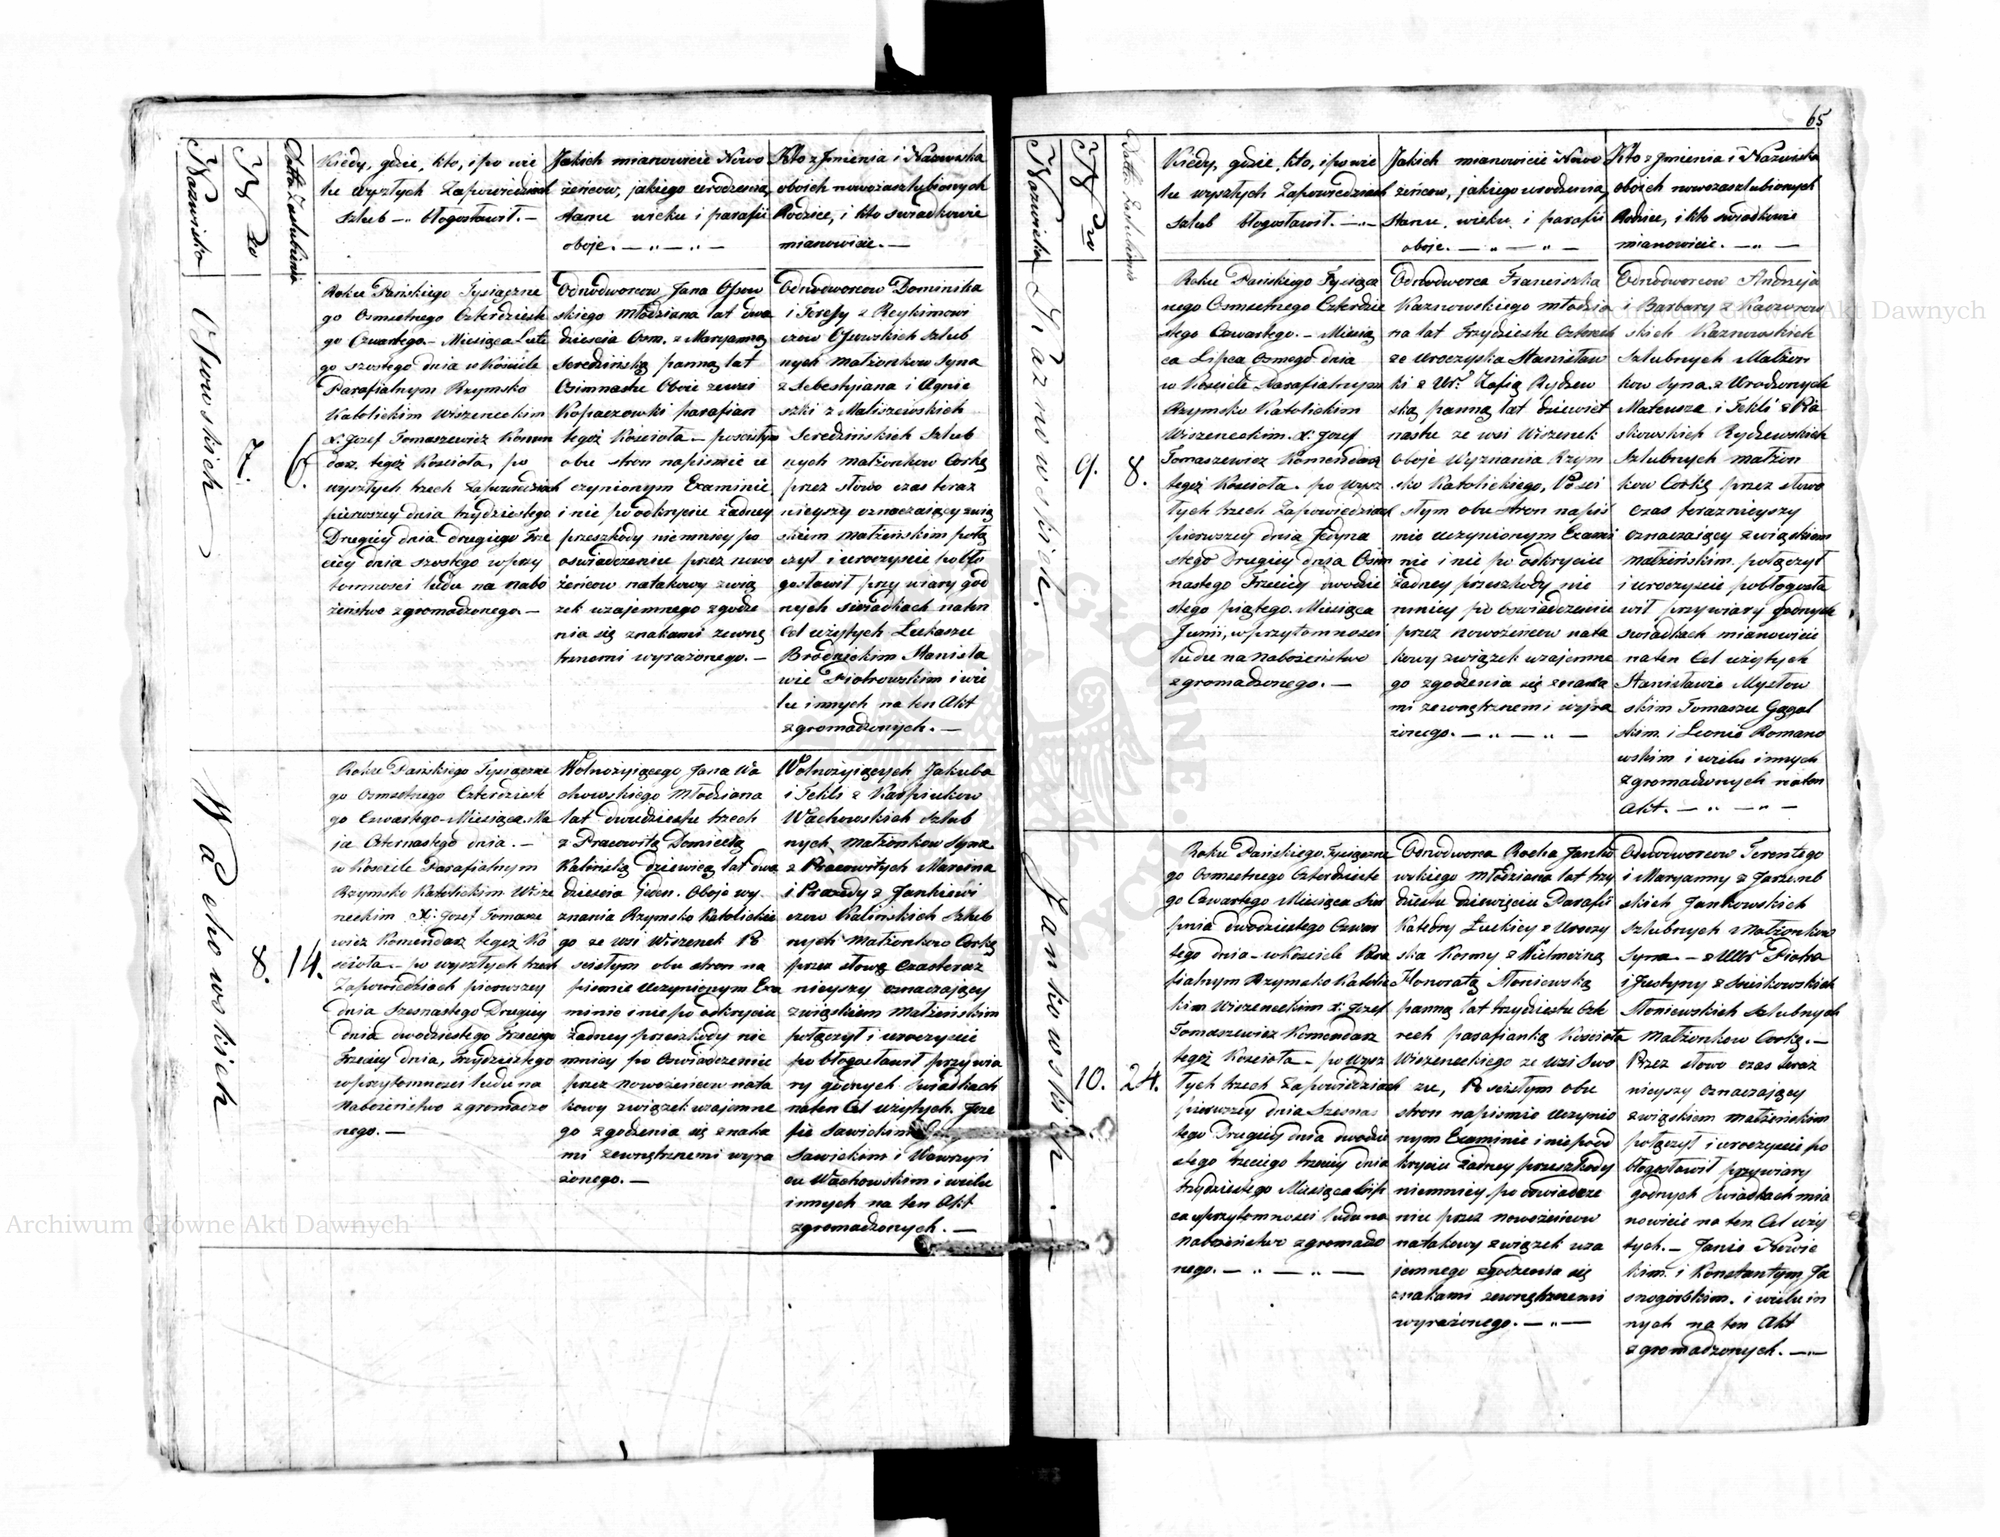 65
Nazwiska
N ro
Datta Zaślubienia
Kiedy, gdzie, kto, i po wie
lu wyszłych Zapowiedziach
Szlub -„- błogosławił. -
Jakich mianowicie Nowo
żeńcow, jakiego urodzenia,
stanu wieku i parafii
oboje. - „ - „ -
Kto z Jmienia i Nazwiska
oboich nowozaszlubionych
Rodzice, i kto swiadkowie
mianowicie. -
7.
6.
Roku Pańskiego Tysiączne
go Osmsetnego Czterdzieste
go Czwartego - Miesiąca Lute
go szostego dnia w Kościele
Parafialnym Rzymsko
Katolickim Wiszeneckim
X. Jozef Tomaszewicz Komen
darz tegoż Kościoła, po
wyszłych trzech Zapowiedziach
pierwszey dnia trzydziestego
Drugiey dnia drugiego Trze
ciey dnia szostego w przy
tomności ludu na nabo
żeństwo zgromadzonego. -
skiego Młodziana lat dwa
dzieścia Osm. z Maryanną
Seredzińską panną lat
Osimnastu Oboie ze wsi
Kopaczowki parafian
tegoż Kościoła - po scisłym
obu stron napismie u
czynionym Examinie
i nie po odkryciu żadney
przeszkody niemniey po
oswiadczeniu przez nowo
żeńcow natakowy zwią
zek wzajemnego zgodze
nia się znakami zewnę
trznemi wyrażonego. -
Odnodworcow Dominika
i Teressy z Reykimowi
nych Małżonkow Syna
z Sebestyiana i Agnie
szki z Maliszewskich
Seredzińskich Szlub
nych małżonkow Corką
przez słowo czas teraz
nieyszy oznaczaiący zwią
skiem małżeńskim połą
czył i uroczyscie pobło
gosławił przy wiary god
nych swiadkach na ten
Cel użytych Łukaszu
Brodzickim Stanisła
wie Piotrowskim i wie
lu innych na ten Akt
zgromadzonych. -
Wachowskich
8.
14.
Roku Pańskiego Tysiączne
go Osmsetnego Czterdzieste
go Czwartego - Miesiąca Ma
ja Czternastego dnia. -
w Kościele Parafialnym
Rzymsko Katolickim Wisze
neckim X. Jozef Tomasze
wicz Komendarz tegoż Ko
ścioła - po wyszłych trzech
Zapowiedziach pierwszey
dnia Szesnastego Drugiey
dnia dwodziestego Trzeciego
Trzeciey dnia, Trzydziestego
w przytomności ludu na
Nabożeństwo zgromadzo
nego. -
Wolnożyiącego Jana Wa
chowskiego Młodziana
lat dwudziestu trzech
z Pracowitą Domicellą
Kalińską dziewicą lat dwa
dzieścia jeden. Oboje wy
znania Rzymsko Katolickie
go ze wsi Wiszenek Po
scisłym obu stron na
pismie Uczynionym Exa
minie i nie po odkryciu
żadney przeszkody nie
mniey po Oswiadczeniu
przez nowożeńcow nata
kowy związek wzajemne
go zgodzenia się znaka
mi zewnętrznemi wyra
żonego. -
Wolnożyiących Jakuba
i Tekli z Karpiukow
Wachowskich Szlub
nych Małżonkow Syna
z Pracowitych Marcina
i Praxedy z Jankiewi
czow Kalińskich Szlub
nych Małżonkow Corką
przez słowo Czasteraz
nieyszy oznaczaiący
związkiem Małżeńskim
połączył i uroczyscie
pobłogosławił przy wia
ry godnych Swiadkach
na ten Cel użytych Joze
fie Sawickim
Sawickim i Wawrzyń
cu Wachowskim i wielu
innych na ten Akt
zgromadzonych. -
Nazwiska
N ro
Datta Zaślubienia
Kiedy, gdzie, kto, i po wie
lu wyszłych Zapowiedziach
szlub błogosławił. -„-
Jakich mianowicie Nowo
żeńcow, jakiego urodzenia,
stanu, wieku, i parafii
oboje. - „ - „ -
Kto z Jmienia i Nazwiska
oboich nowozaszlubionych
Rodzice, i kto swiadkowie
mianowicie. - „ -
Kaznowskich.
9.
8.
Roku Pańskiego Tysiącz
nego Osmsetnego Czterdzie
stego Czwartego. - Miesią
ca Lipca Osmego dnia
w Kościele Parafialnym
Rzymsko Katolickim
Wiszeneckim. X. Jozef
Tomaszewicz Komendarz
tegoż Kościoła. po wysz
łych trzech Zapowiedziach
pierwszey dnia Jedyna
stego Drugiey dnia Osim
nastego Trzeciey dwodzie
stego piątego. Miesiąca
Junii, w przytomności
ludu na Nabożeństwo
zgromadzonego. -
Odnodworca Franciszka
Kaznowskiego młodzia
na lat Trzydziestu Czterech
ze Uroczyska Stanisław
ki z Ur. Zofią Rydzew
ską panną lat dziewięt
nastu ze wsi Wiszenek
Oboje Wyznania Rzym
sko Katolickiego, Po sci
słym obu stron napis
mie uczynionym Exami
nie i nie po odkryciu
żadney przeszkody nie
mniey po oswiadczeniu
przez nowożeńcow nata
kowy związek wzajemne
go zgodzenia się znaka
mi zewnętrznemi wyra
żonego. - „ - „ -
Odnodworcow Andrzeja
i Barbary z Kaczorow
skich Kaznowskich
Szlubnych Małżon
kow Syna. z Urodzonych
Mateusza i Tekli z Ra
skowskich Rydzewskich
Szlubnych małżon
kow Corką przez słowo
czas teraznieyszy
oznaczaiący związskiem
małżeńskim. połączył
i uroczyscie pobłogosła
wił przy wiary godnych
swiadkach mianowicie
na ten Cel użytych
Stanisławie Mysłow
skim Tomaszu Gągal
skim. i Leonie Romano
wskim i wielu innych
zgromadzonych na ten
Akt. - „ - „ -
Jankowskich. -
10.
24.
Roku Pańskiego Tysiączne
go Osmsetnego Czterdzieste
go Czwartego Miesiąca Sier
pnia dwodziestego Czwar
tego dnia - w Kościele Para
fialnym Rzymsko Katolic
kim Wiszeneckim X. Jozef
Tomaszewicz Komendarz
tegoż Kościoła - po wysz
łych trzech Zapowiedziach
pierwszey dnia Szesnas
tego Drugiey dnia dwodzie
stego trzeciego trzeciey dnia
trzydziestego Miesiąca Lip
ca w przytomności ludu na
Nabożeństwo zgromadzo
nego. - „ - „ -
Odnodworca Rocha Janko
wskiego młodziana lat trzy
dziestu dziewięciu Parafii
Katedry Łuckiey z Uroczy
ska Kormy z Wielmożną
Honoratą Słoniewską
panną lat trzydziestu Czte
rech parafianką Kościoła
Wiszeneckiego ze wsi Swo
zu, Po scisłym obu
stron napismie Uczynio
nym Examinie i nie pood
kryciu żadney przeszkody
niemniey po oswiadcze
niu przez nowożeńcow
natakowy związek wza
jemnego zgodzenia się
znakami zewnętrznemi
wyrażonego. - „ -
Odnodworcow Terentego
skich Jankowskich
szlubnych Małżonkow
Syna - z WW. Piotra
i Justyny z Snikowskich
Słoniewskich Szlubnych
Małżonkow Corką. -
Przez słowo czas teraz
nieyszy Oznaczaiący
związskiem małżeńskim
połączył i uroczyscie po
błogosławił przy wiary
godnych Swiadkach mia
nowicie na ten Cel uży
tych. - Janie Nowic
kim. i Konstantym Ja
snogorskim. i wielu in
nych na ten Akt
zgromadzonych. -„-
Archiwum Główne Akt Dawnych
Archiwum Główne Akt Dawnych